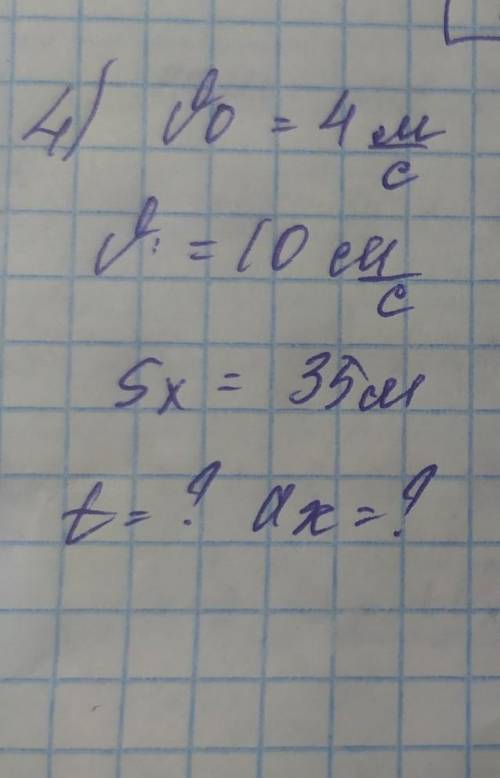 4) v0 = 4 м/с
v = 10 м/с
Sx = 35м
t = ? ax = ?